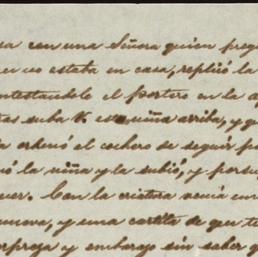 sa con una Señora quien preg
no estaba en casa, replicó la
ntestandole el portero en la a
tas suba V. esta niña arriba, y q
a ordenó el cochero de seguir p
ó la niña y la subió, y porsu
uer. Con la cristura venia un
nueva, y una cartita de que t
orpresa y embargo sin saber q